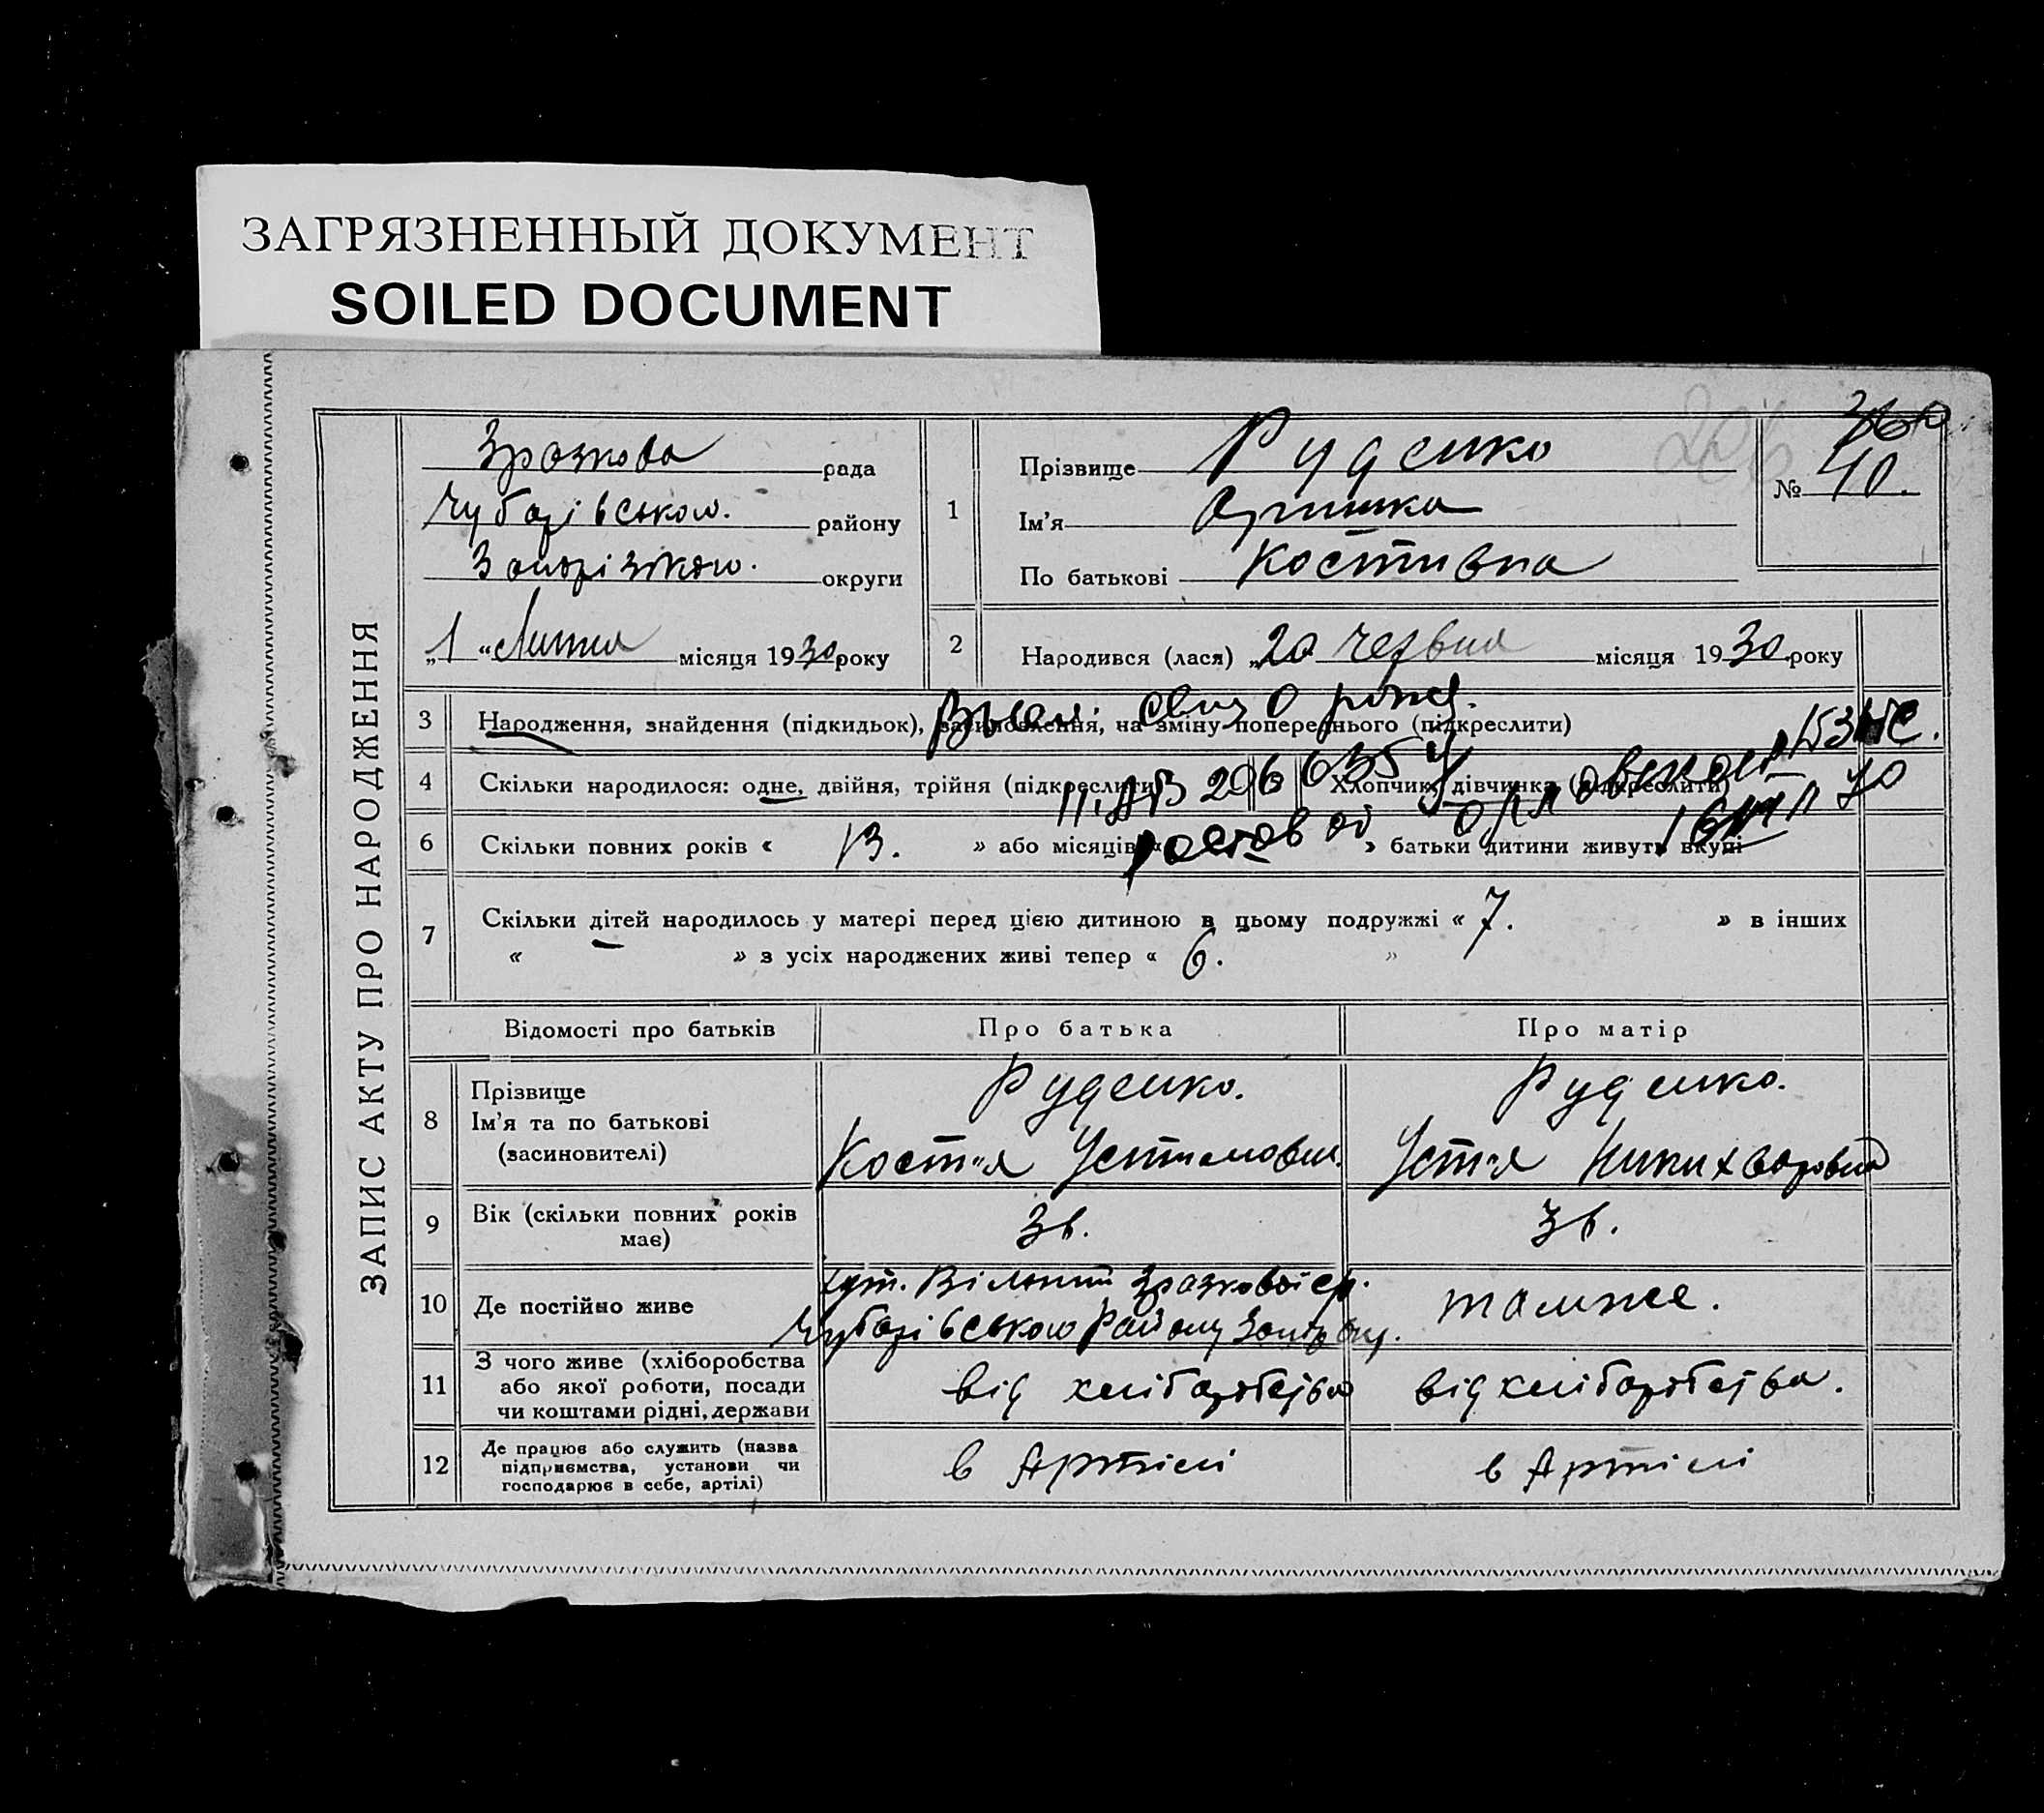 ЗАГРЯЗНЕННЫЙ ДОКУМЕНТ
SOILED DOCUMENT
ЗАПИС АКТУ ПРО НАРОДЖЕННЯ
Зразкова рада
Чубарівського. району
Запорізького. округи
„1“ Липня місяця 1930 року
1
Прізвище Руденко
Ім’я Оришка
По батькові Костивна
№ 40.
2 Народився (лася) „20 червня місяця 1930 року
3 Народження, знайдення (підкидьок), засиновлення, на зміну попереднього (підкреслити)
4 Скільки народилося: одне, двійня, трійня (підкреслити) 5 Хлопчик, дівчинка (підкреслити)
6 Скільки повних років « 13. » або місяців « » батьки дитини живуть вкупі
7 Скільки дітей народилось у матері перед цією дитиною в цьому подружжі « 7. » в інших
« — » з усіх народжених живі тепер « 6. »
Відомості про батьків Про батька Про матір
8 Прізвище
Ім’я та по батькові
(засиновителі)
Руденко. Руденко.
Кост“я Устимович. Уст“я Никихворовна
9 Вік (скільки повних років має) 36. 36.
10 Де постійно живе
хут. Вільний Зразкової ср.
Чубарівського Району
тамже.
11 З чого живе (хліборобства
або якої роботи, посади
чи коштами рідні, держави
від хліборобства від хліборобства.
12 Де працює або служить (назва
підприємства, установи чи
господарює в себе, артілі)
в Артілі в Артілі